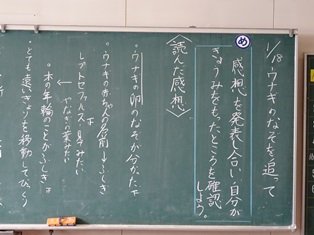 1/18 ウナギのなぞを追って
め
感想を発表し合い、自分が
きょうみをもったところを確認
しよう。
〈読んだ感想〉
・ウナギの卵のなぞが分かった
・ウナギの赤ちゃんの名前→ふしぎ
レプトセファルス 見てみたい
・木の年輪のことがふしぎ
・とても遠いきょりを移動してびっくり